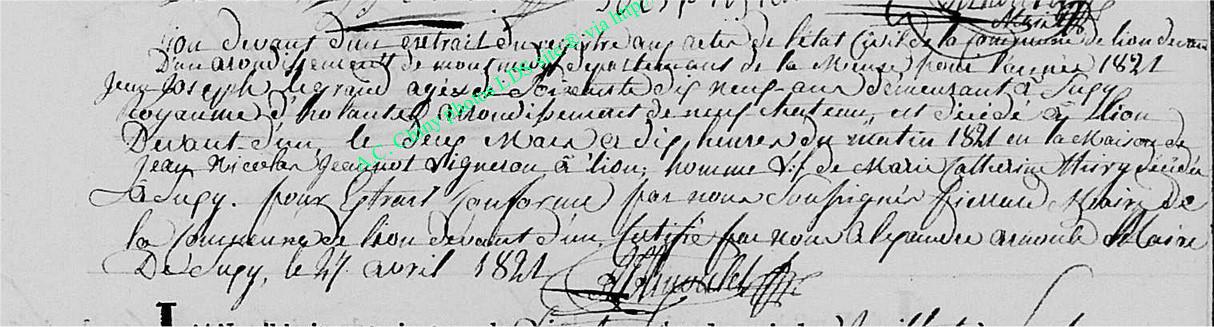 Lion devant d'un extrait du registre aux actes de l'état Civil de la commune de lion devant
D'un arondissement de montmedy departement de la Meuse pour l'année 1821
Jean Joseph Legrand agé de Soixante dix neuf ans demeurant à Sugy
Royaume d'hollande arondissement de neufchateau, est décédé à Lion
Devant d'un, le deux Mars a dix heures du matin 1821 en la Maison de
Jean Nicolas Jeannot Vigneron à lion, homme V:f de Marie Catherine Thiry décédée
à Sugy. pour Extrait Conforme par nous Soussigné Pierrard Maire de
la Commune de lion devant d'un, Certifié par nous alexandre arnould Maire
De Sugy, le 27 avril 1821
A.C. Chiny Photos LDS cité® via http